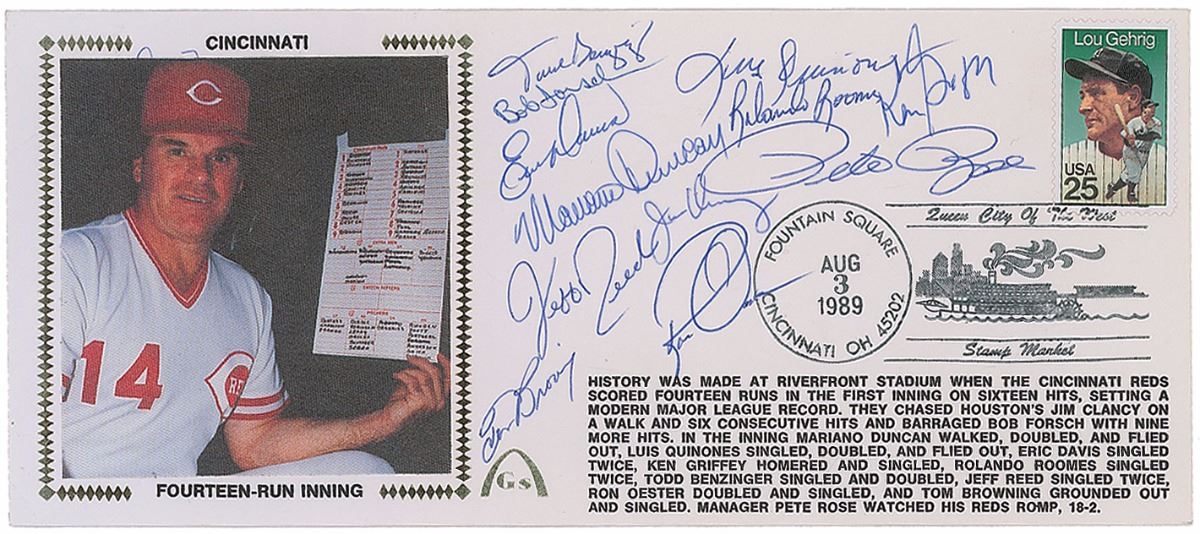 CINCINNATI
14
REDS
Cincinnati Reds
FOURTEEN-RUN INNING
Bob Forsch
Eric Davis
Mariano Duncan
Rolando Roomes
Pete Rose
Jeff Reed
Jim Clancy
Tom Browning
Gs
Lou Gehrig
USA
25
FOUNTAIN SQUARE
AUG
3
1989
CINCINNATI OH 45202
Queen City Of The West
Stamp Market
HISTORY WAS MADE AT RIVERFRONT STADIUM WHEN THE CINCINNATI REDS
SCORED FOURTEEN RUNS IN THE FIRST INNING ON SIXTEEN HITS, SETTING A
MODERN MAJOR LEAGUE RECORD. THEY CHASED HOUSTON'S JIM CLANCY ON
A WALK AND SIX CONSECUTIVE HITS AND BARRAGED BOB FORSCH WITH NINE
MORE HITS. IN THE INNING MARIANO DUNCAN WALKED, DOUBLED, AND FLIED
OUT, LUIS QUINONES SINGLED, DOUBLED, AND FLIED OUT, ERIC DAVIS SINGLED
TWICE, KEN GRIFFEY HOMERED AND SINGLED, ROLANDO ROOMES SINGLED
TWICE, TODD BENZINGER SINGLED AND DOUBLED, JEFF REED SINGLED TWICE,
RON OESTER DOUBLED AND SINGLED, AND TOM BROWNING GROUNDED OUT
AND SINGLED. MANAGER PETE ROSE WATCHED HIS REDS ROMP, 18-2.